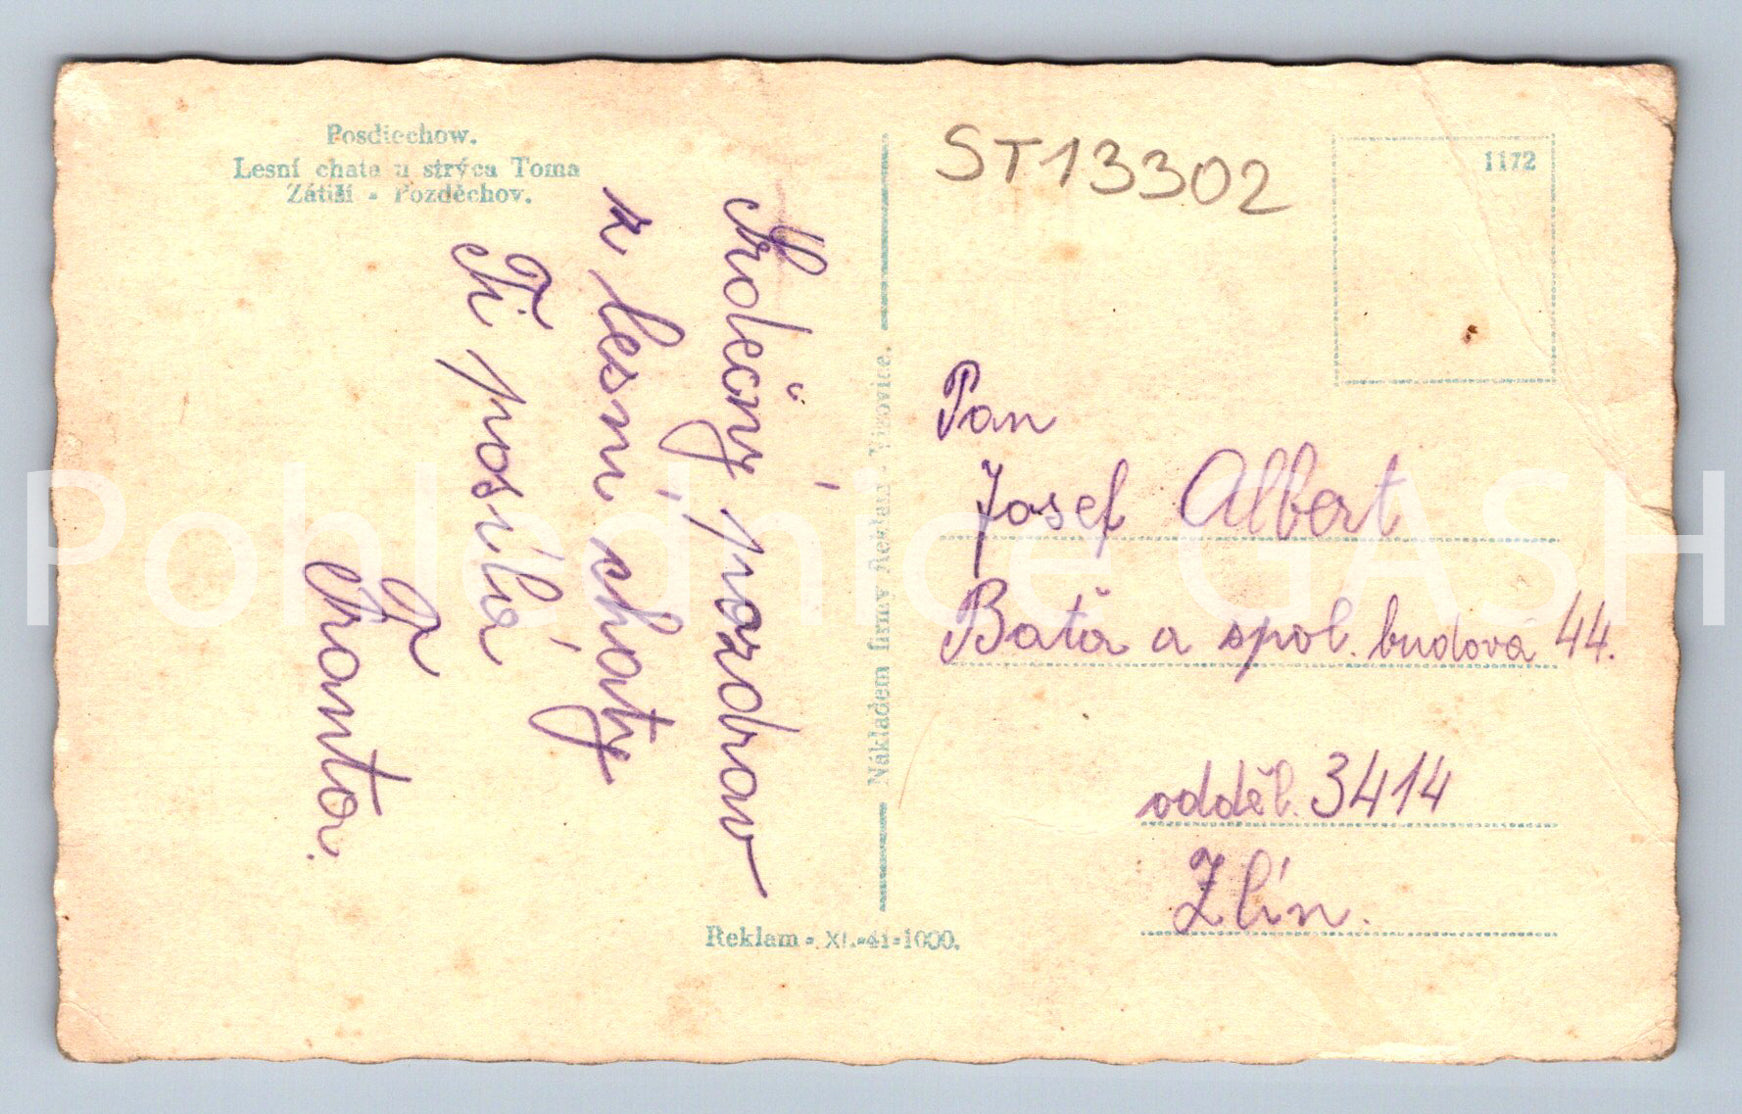 Posdiechow.
Lesní chata u strýca Toma
Zátiší - Pozděchov.
Srdečný pozdrav
z lesní chaty
Ti posílá
Fr
Franta.
Nákladem firmy Reklam - Vizovice.
Reklam - XI.-41-1000.
ST13302
1172
Pan
Josef Albert
Baťa a spol. budova 44.
odděl. 3414
Zlín.
Pohlednice GASH